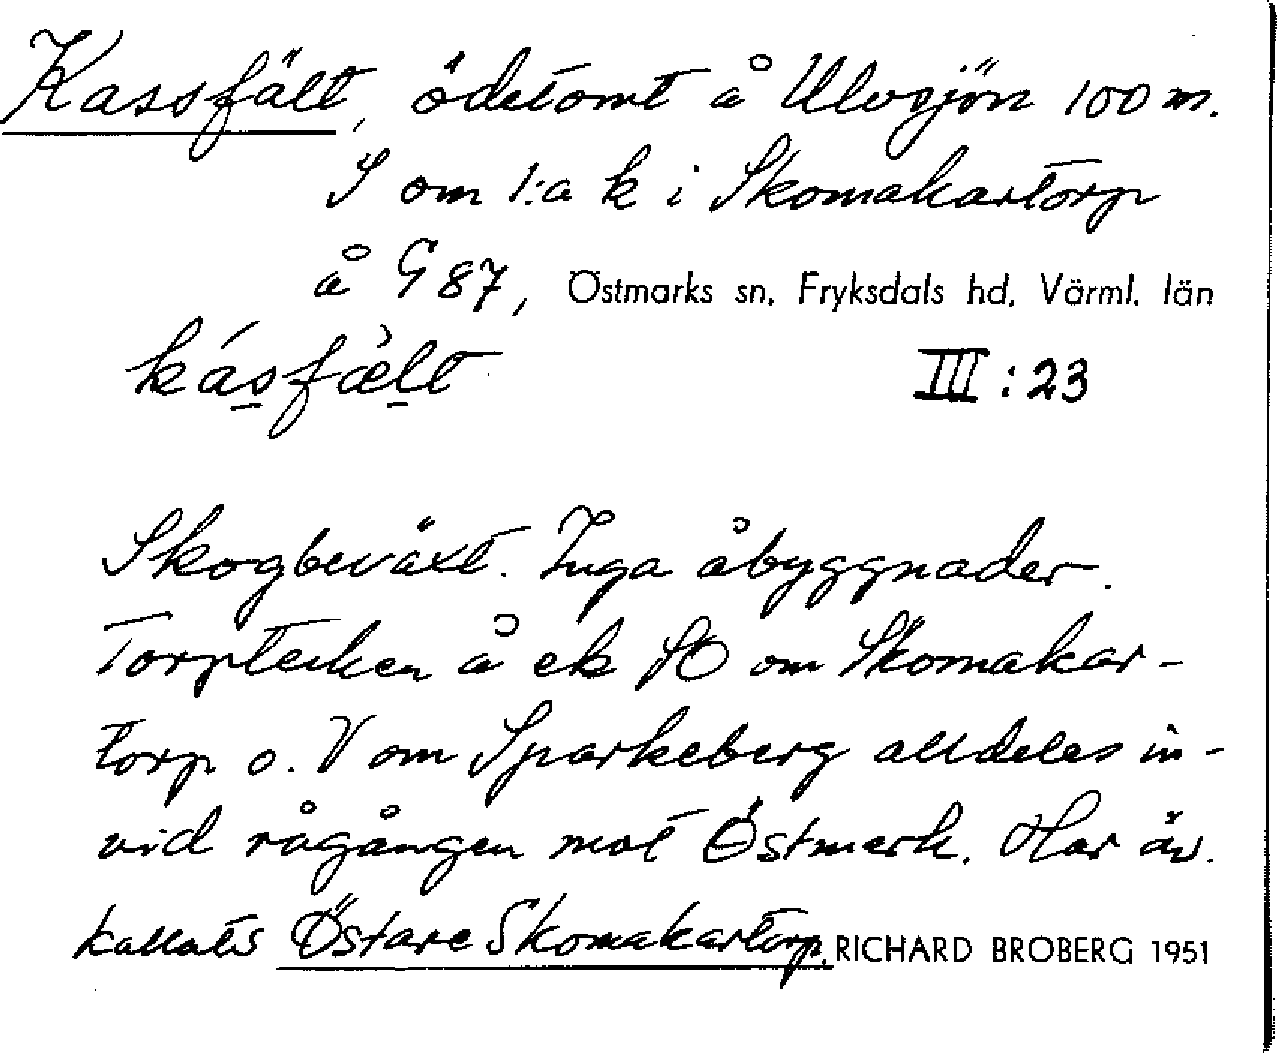 Kassfält, ödetomt å Ulvsjön 100 m.
S om 1:a k i Skomakartorp
å G 87, Östmarks sn, Fryksdals hd, Värml. län
kásfæ̀lt III:23
Skogbeväxt. Inga åbyggnader.
Torptecken å ek SO om Skomakar-
torp o. V om Sparkeberg alldeles in-
vid rågången mot Östmark. Har äv.
kallats Östare Skomakartorp. RICHARD BROBERG 1951